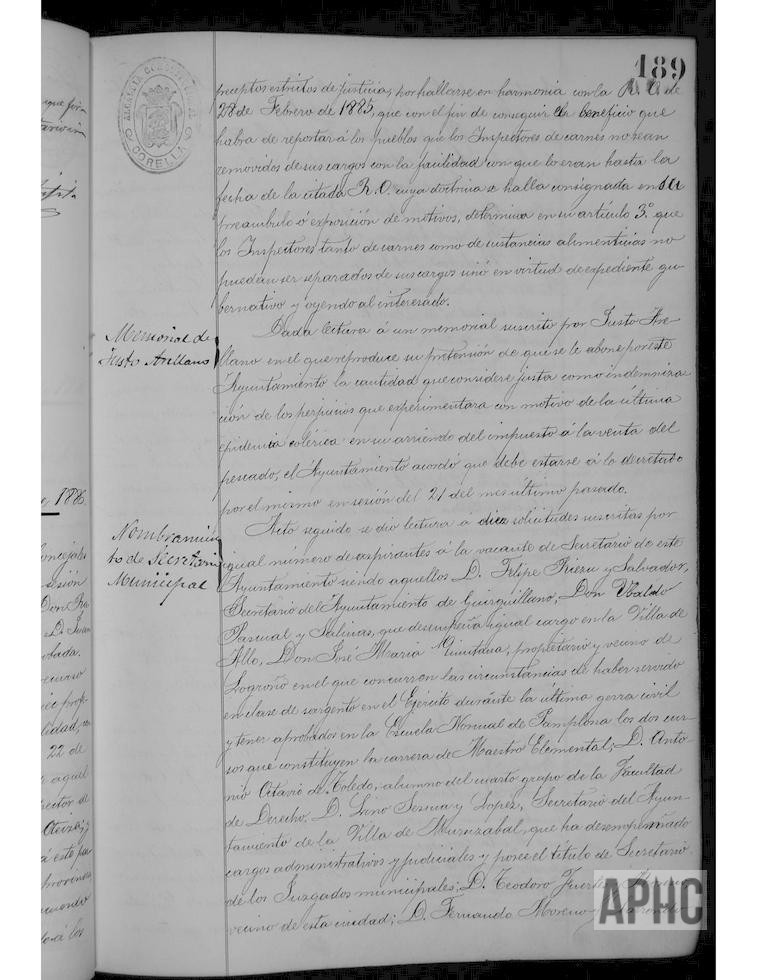 189
ALCALDÍA CONSTITUCIONAL
CORELLA
preceptos estrictos de justicia, por hallarse en harmonia con la R. O. de
28 de Febrero de 1885, que con el fin de conseguir el beneficio que
habra de reportar á los pueblos que los Inspectores de carnes no sean
removidos de sus cargos con la facilidad con que lo eran hasta la
fecha de la citada R. O. cuya doctrina se halla consignada en su
preambulo ó exposición de motivos, determina en su artículo 3º que
los Inspectores tanto de carnes como de sustancias alimenticias no
puedan ser separados de sus cargos sinó en virtud de expediente gu-
bernativo y oyendo al interesado.
Memorial de
Justo Arellano
Dada lectura á un memorial suscrito por Justo Are-
llano en el que reproduce su pretensión de que se le abone por este
Ayuntamiento la cantidad que considere justa como indemniza
cion de los perjuicios que experimentara con motivo de la última
epidemia colérica en su arriendo del impuesto á la venta del
pescado, el Ayuntamiento acordó que debe estarse á lo decretado
por el mismo en sesión del 21 del mes último pasado.
Nombramien
to de Secretario
Municipal
Acto seguido se dió lectura á diez solicitudes suscritas por
igual número de aspirantes á la vacante de Secretario de este
Ayuntamiento siendo aquellos D. Felipe Ruesu y Salvador,
Secretario del Ayuntamiento de Guirguillano, Don Ubaldo
Pascual y Salinas, que desempeña igual cargo en la Villa de
Allo, Don José María Quintana, propietario y vecino de
Logroño en el que concurren las circunstancias de haber servido
en clase de sargento en el Ejército durante la última gerra civil
y tener aprobados en la Escuela Normal de Pamplona los dos cur-
sos que constituyen la carrera de Maestro Elemental; D. Anto-
nio Octavio de Toledo, alumno del cuarto grupo de la Facultad
de Derecho, D. Lino Sesma y Lopez, Secretario del Ayun-
tamiento de la Villa de Muruzabal, que ha desempeñado
cargos administrativos y judiciales y posee el título de Secretario
de los Juzgados municipales; D. Teodoro Fuertes y
vecino de esta ciudad; D. Fernando Moreno y
1886.
Concejales
sesión
Don
D. Juan
recurso
22 de
aquel
de
á este
provincia
á los
APHC